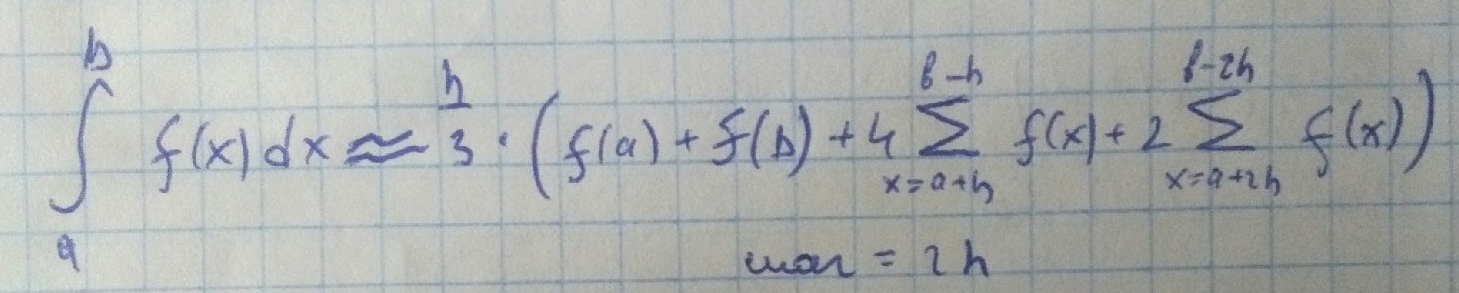 ∫_a^b f(x)dx ≈ h/3 · (f(a) + f(b) + 4 ∑_{x=a+h}^{b-h} f(x) + 2 ∑_{x=a+2h}^{b-2h} f(x))
шаг = 2h